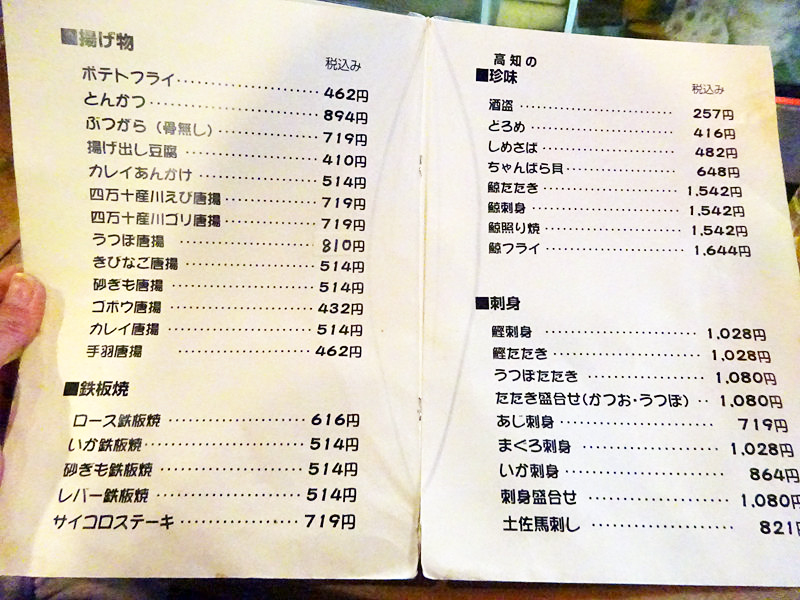 ■揚げ物
税込み
ポテトフライ・・・・・・・・・・・・・・・・・・462円
とんかつ・・・・・・・・・・・・・・・・・・894円
ぶつから（骨無し）・・・・・・・・・・・・719円
揚げ出し豆腐・・・・・・・・・・・・・・・・410円
カレイあんかけ・・・・・・・・・・・・・・514円
四万十産川えび唐揚・・・・・・・・・・719円
四万十産川ゴリ唐揚・・・・・・・・・・719円
うつぼ唐揚・・・・・・・・・・・・・・・・810円
きびなご唐揚・・・・・・・・・・・・・・514円
砂ぎも唐揚・・・・・・・・・・・・・・・・514円
ゴボウ唐揚・・・・・・・・・・・・・・・・432円
カレイ唐揚・・・・・・・・・・・・・・・・514円
手羽唐揚・・・・・・・・・・・・・・・・462円
■鉄板焼
ロース鉄板焼・・・・・・・・・・・・・・616円
いか鉄板焼・・・・・・・・・・・・・・・・514円
砂ぎも鉄板焼・・・・・・・・・・・・・・514円
レバー鉄板焼・・・・・・・・・・・・・・514円
サイコロステーキ・・・・・・・・・・・・719円
高知の
■珍味
税込み
酒盗・・・・・・・・・・・・・・・・・・257円
どろめ・・・・・・・・・・・・・・・・・・416円
しめさば・・・・・・・・・・・・・・・・482円
ちゃんばら貝・・・・・・・・・・・・・・648円
鯨たたき・・・・・・・・・・・・・・・・1,542円
鯨刺身・・・・・・・・・・・・・・・・1,542円
鯨照り焼・・・・・・・・・・・・・・・・1,542円
鯨フライ・・・・・・・・・・・・・・・・1,644円
■刺身
鰹刺身・・・・・・・・・・・・・・・・1,028円
鰹たたき・・・・・・・・・・・・・・・・1,028円
うつぼたたき・・・・・・・・・・・・・・1,080円
たたき盛合せ(かつお・うつぼ)・・1,080円
あじ刺身・・・・・・・・・・・・・・・・719円
まぐろ刺身・・・・・・・・・・・・・・1,028円
いか刺身・・・・・・・・・・・・・・・・864円
刺身盛合せ・・・・・・・・・・・・・・1,080円
土佐馬刺し・・・・・・・・・・・・・・821円